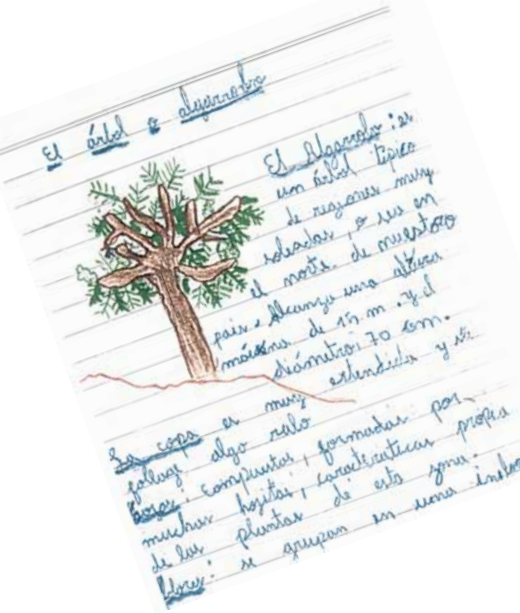 El árbol o algarrobo
El Algarrobo: es
un árbol típico
de regiones muy
soleadas, o sea en
el norte de nuestro
pais. Alcanza una altura
máxima de 15 m. y el
diámetro: 70 cm.
La copa es muy extendida y su
follage algo ralo
hojas: compuestas, formadas por
muchas hojitas, características propia
de las plantas de esta zona.
flores: se agrupan en una